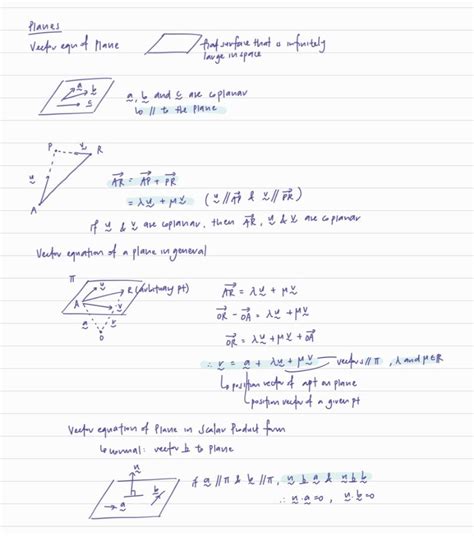 Planes
Vector eqn of Plane
flat surface that is infinitely
large in space
a b
c
a, b and c are coplanar
↳ // to the plane
P v R
u
A
AR = AP + PR
= λu + μv (u // AP & v // PR)
If u & v are coplanar, then AR, u & v are coplanar
Vector equation of a plane in general
π
u
A R (arbitrary pt)
v
a
O
AR = λu + μv
OR - OA = λu + μv
OR = λu + μv + OA
∴ r = a + λu + μv vectors // π, λ and μ ∈ R
↳ position vector of a pt on plane
position vector of a given pt
Vector equation of Plane in Scalar Product form
↳ normal: vector ⊥ to plane
n
b
a
if a // π & b // π, n ⊥ a & n ⊥ b
∴ n·a = 0, n·b = 0